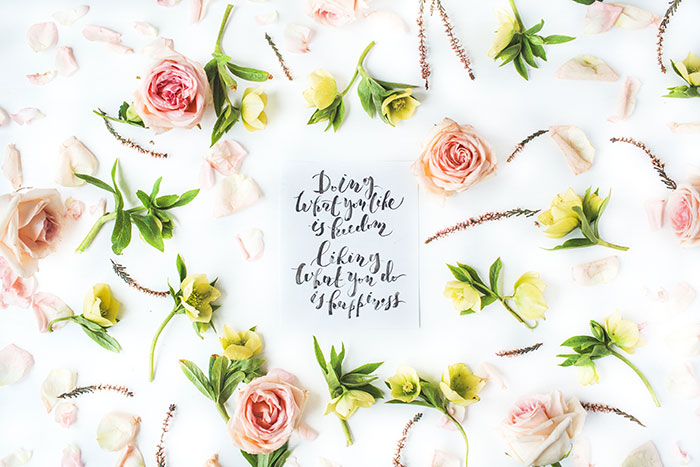 Doing
What you like
is freedom
liking
What you do
is happiness